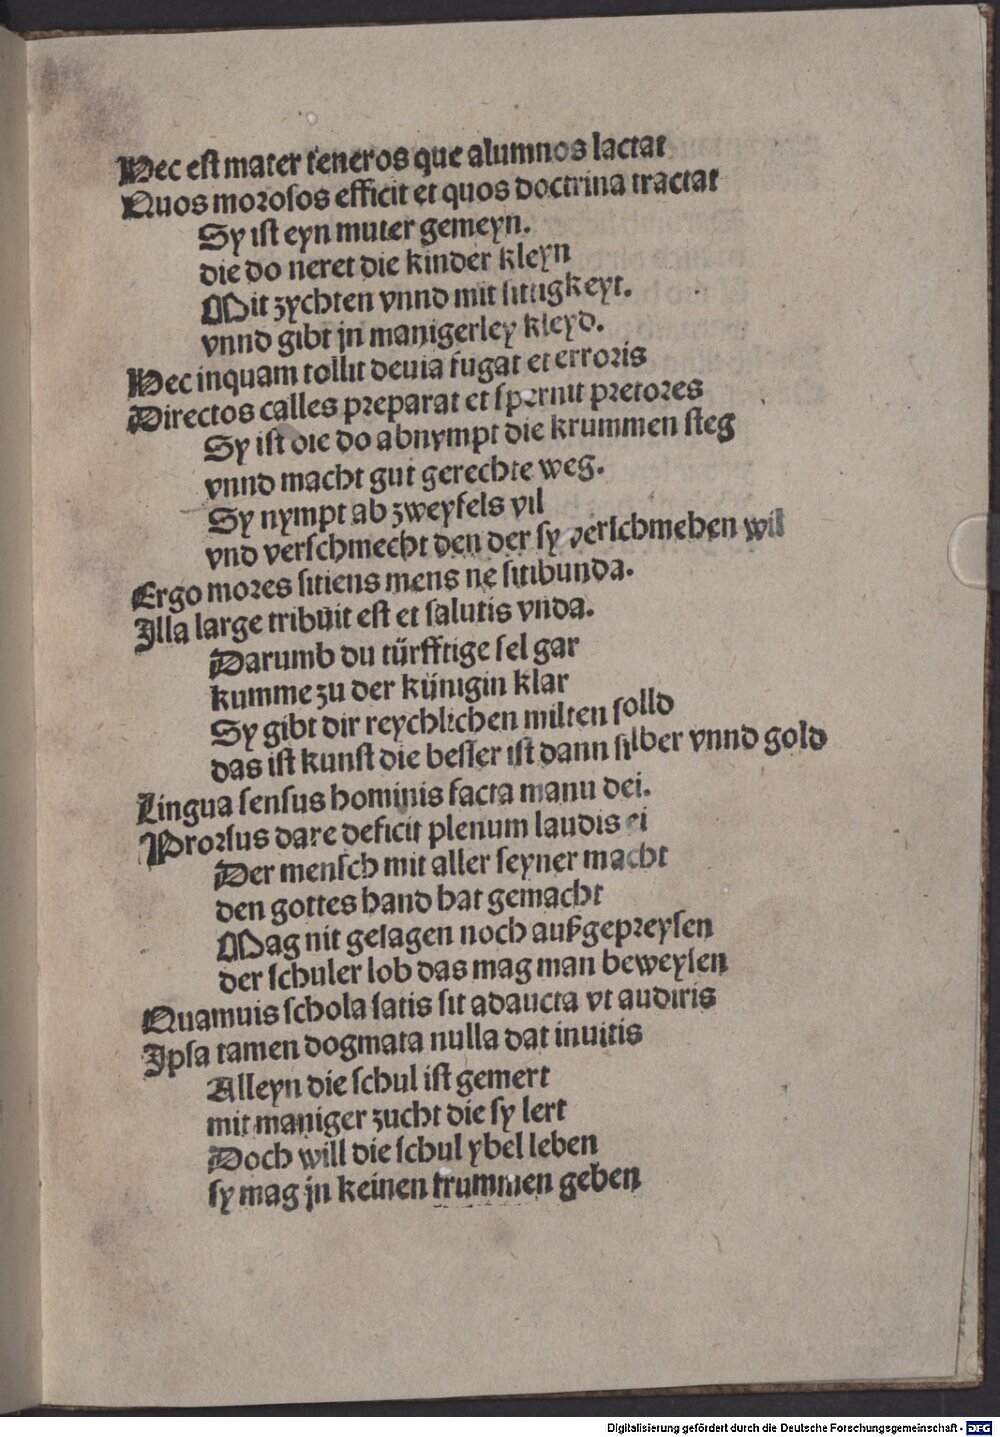 Hec est mater teneros que alumnos lactat
Quos morosos efficit et quos doctrina tractat
Sy ist eyn muter gemeyn.
die do neret die kinder kleyn
Mit zychten vnnd mit sittigkeyt.
vnnd gibt jn manigerley kleyd.
Hec inquam tollit deuia fugat et erroris
Directos calles preparat et spernit pretores
Sy ist die do abnympt die krummen steg
vnnd macht gut gerechte weg.
Sy nympt ab zweyfels vil
vnd verschmecht den der sy verschmehen wil
Ergo mores sitiens mens ne sitibunda.
Illa large tribuit est et salutis vnda.
Darumb du türfftige sel gar
kumme zu der künigin klar
Sy gibt dir reychlichen milten solld
das ist kunst die besser ist dann silber vnnd gold
Lingua sensus hominis facta manu dei.
Prorsus dare deficit plenum laudis ei
Der mensch mit aller seyner macht
den gottes hand hat gemacht
Mag nit gesagen noch außgepreysen
der schuler lob das mag man beweysen
Quamuis schola satis sit adaucta vt audiris
Ipsa tamen dogmata nulla dat inuitis
Alleyn die schul ist gemert
mit maniger zucht die sy lert
Doch will die schul ybel leben
sy mag jn keinen frummen geben
Digitalisierung gefördert durch die Deutsche Forschungsgemeinschaft - DFG